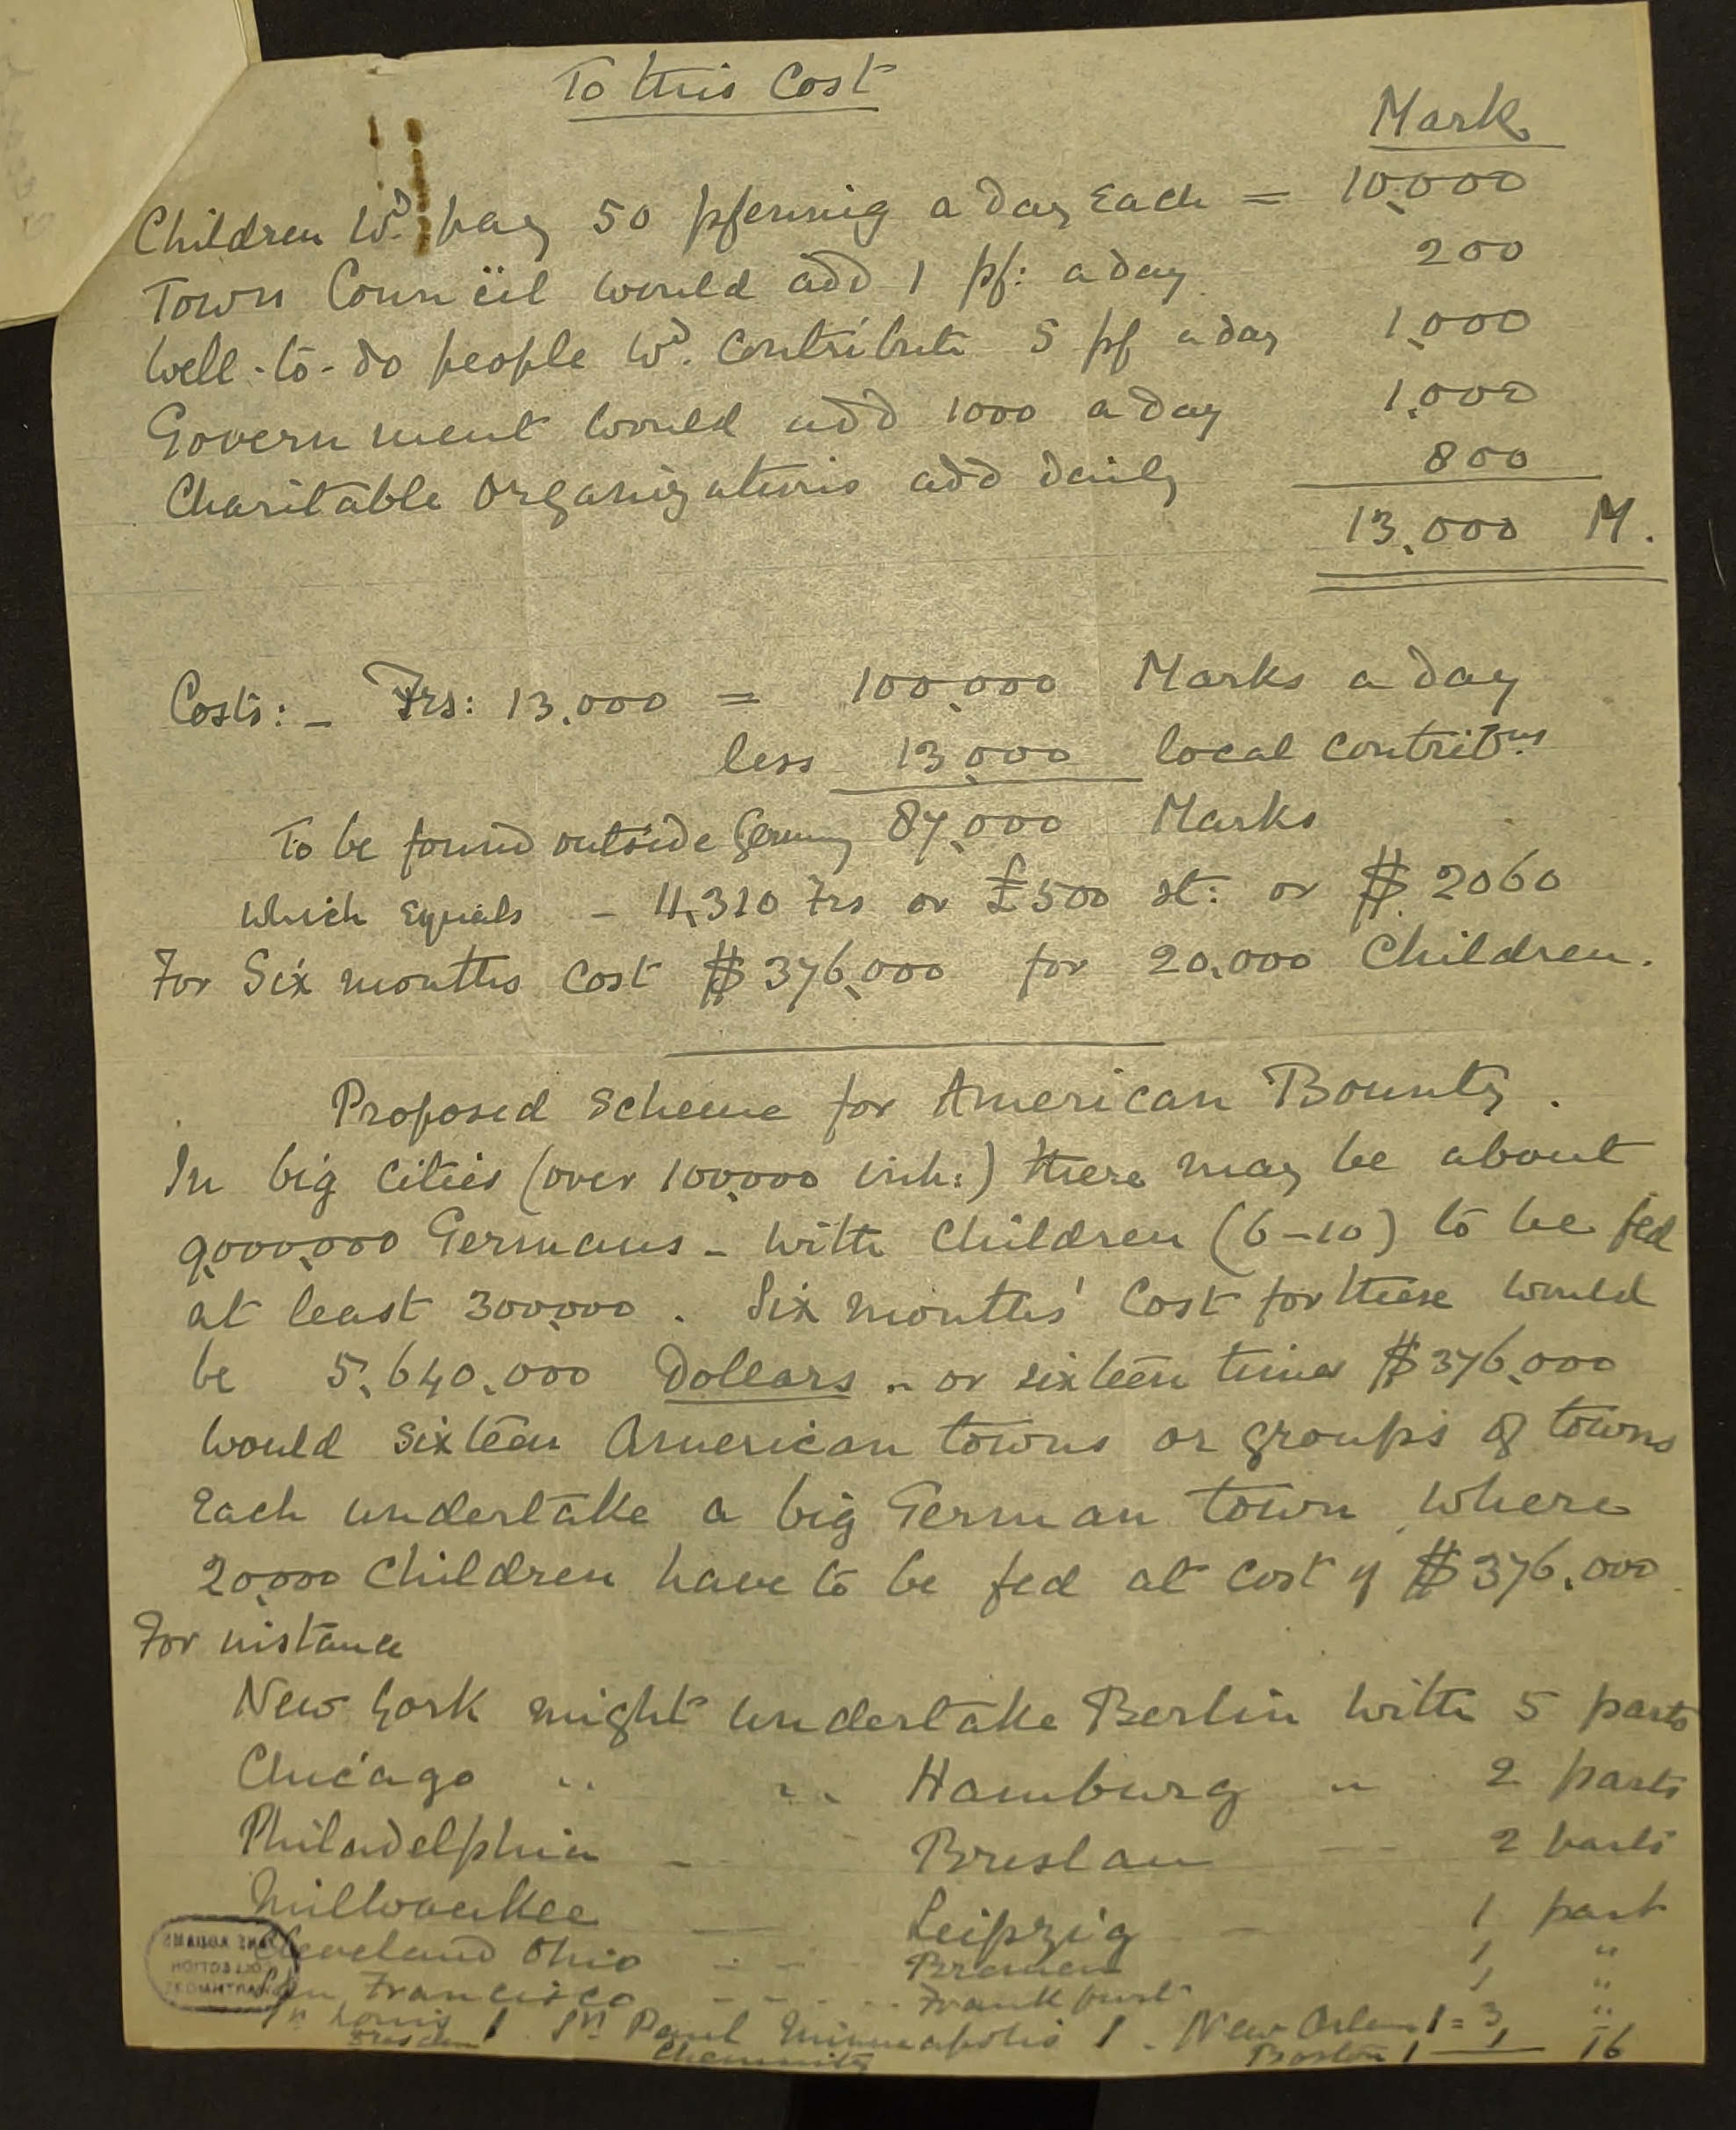 To this Cost
Mark
Children wd. pay 50 pfennig a day Each = 10,000
Town Council would add 1 pf: a day 200
Well-to-do people wd. contribute 5 pf a day 1,000
Government would add 1000 a day 1,000
Charitable Organizations add daily 800
13,000 M.
Costs: - Frs: 13,000 = 100,000 Marks a day
less 13,000 local contribons
To be found outside Germny 87,000 Marks
which Equals - 11,310 Frs or £500 st: or $ 2060
For Six months Cost $ 376,000 for 20,000 Children.
Proposed Scheme for American Bounty.
In big cities (over 100,000 inh:) there may be about
9,000,000 Germans - with Children (6-10) to be fed
at least 300,000. Six months' Cost for these would
be 5,640,000 Dollars - or sixteen times $ 376,000
would sixteen American towns or groups of towns
Each undertake a big German town where
20,000 Children have to be fed at cost of $ 376,000
For instance
New York might undertake Berlin with 5 parts
Chicago " " Hamburg " 2 parts
Philadelphia - Breslau - 2 parts
Millwaukee - Leipzig - 1 part
Cleveland Ohio - - Bremen 1 "
San Francisco - - - Frankfurt 1 "
St Louis 1. St Paul Minneapolis 1. New Orlean 1 = 3 "
Dresden Chemnitz Boston 1 1 16